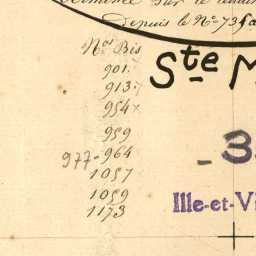 Depuis le N° 73
Nos Bis
Ste M
901
913
954
959
977-964
1057
1059
1173
- 3
Ille-et-Vi